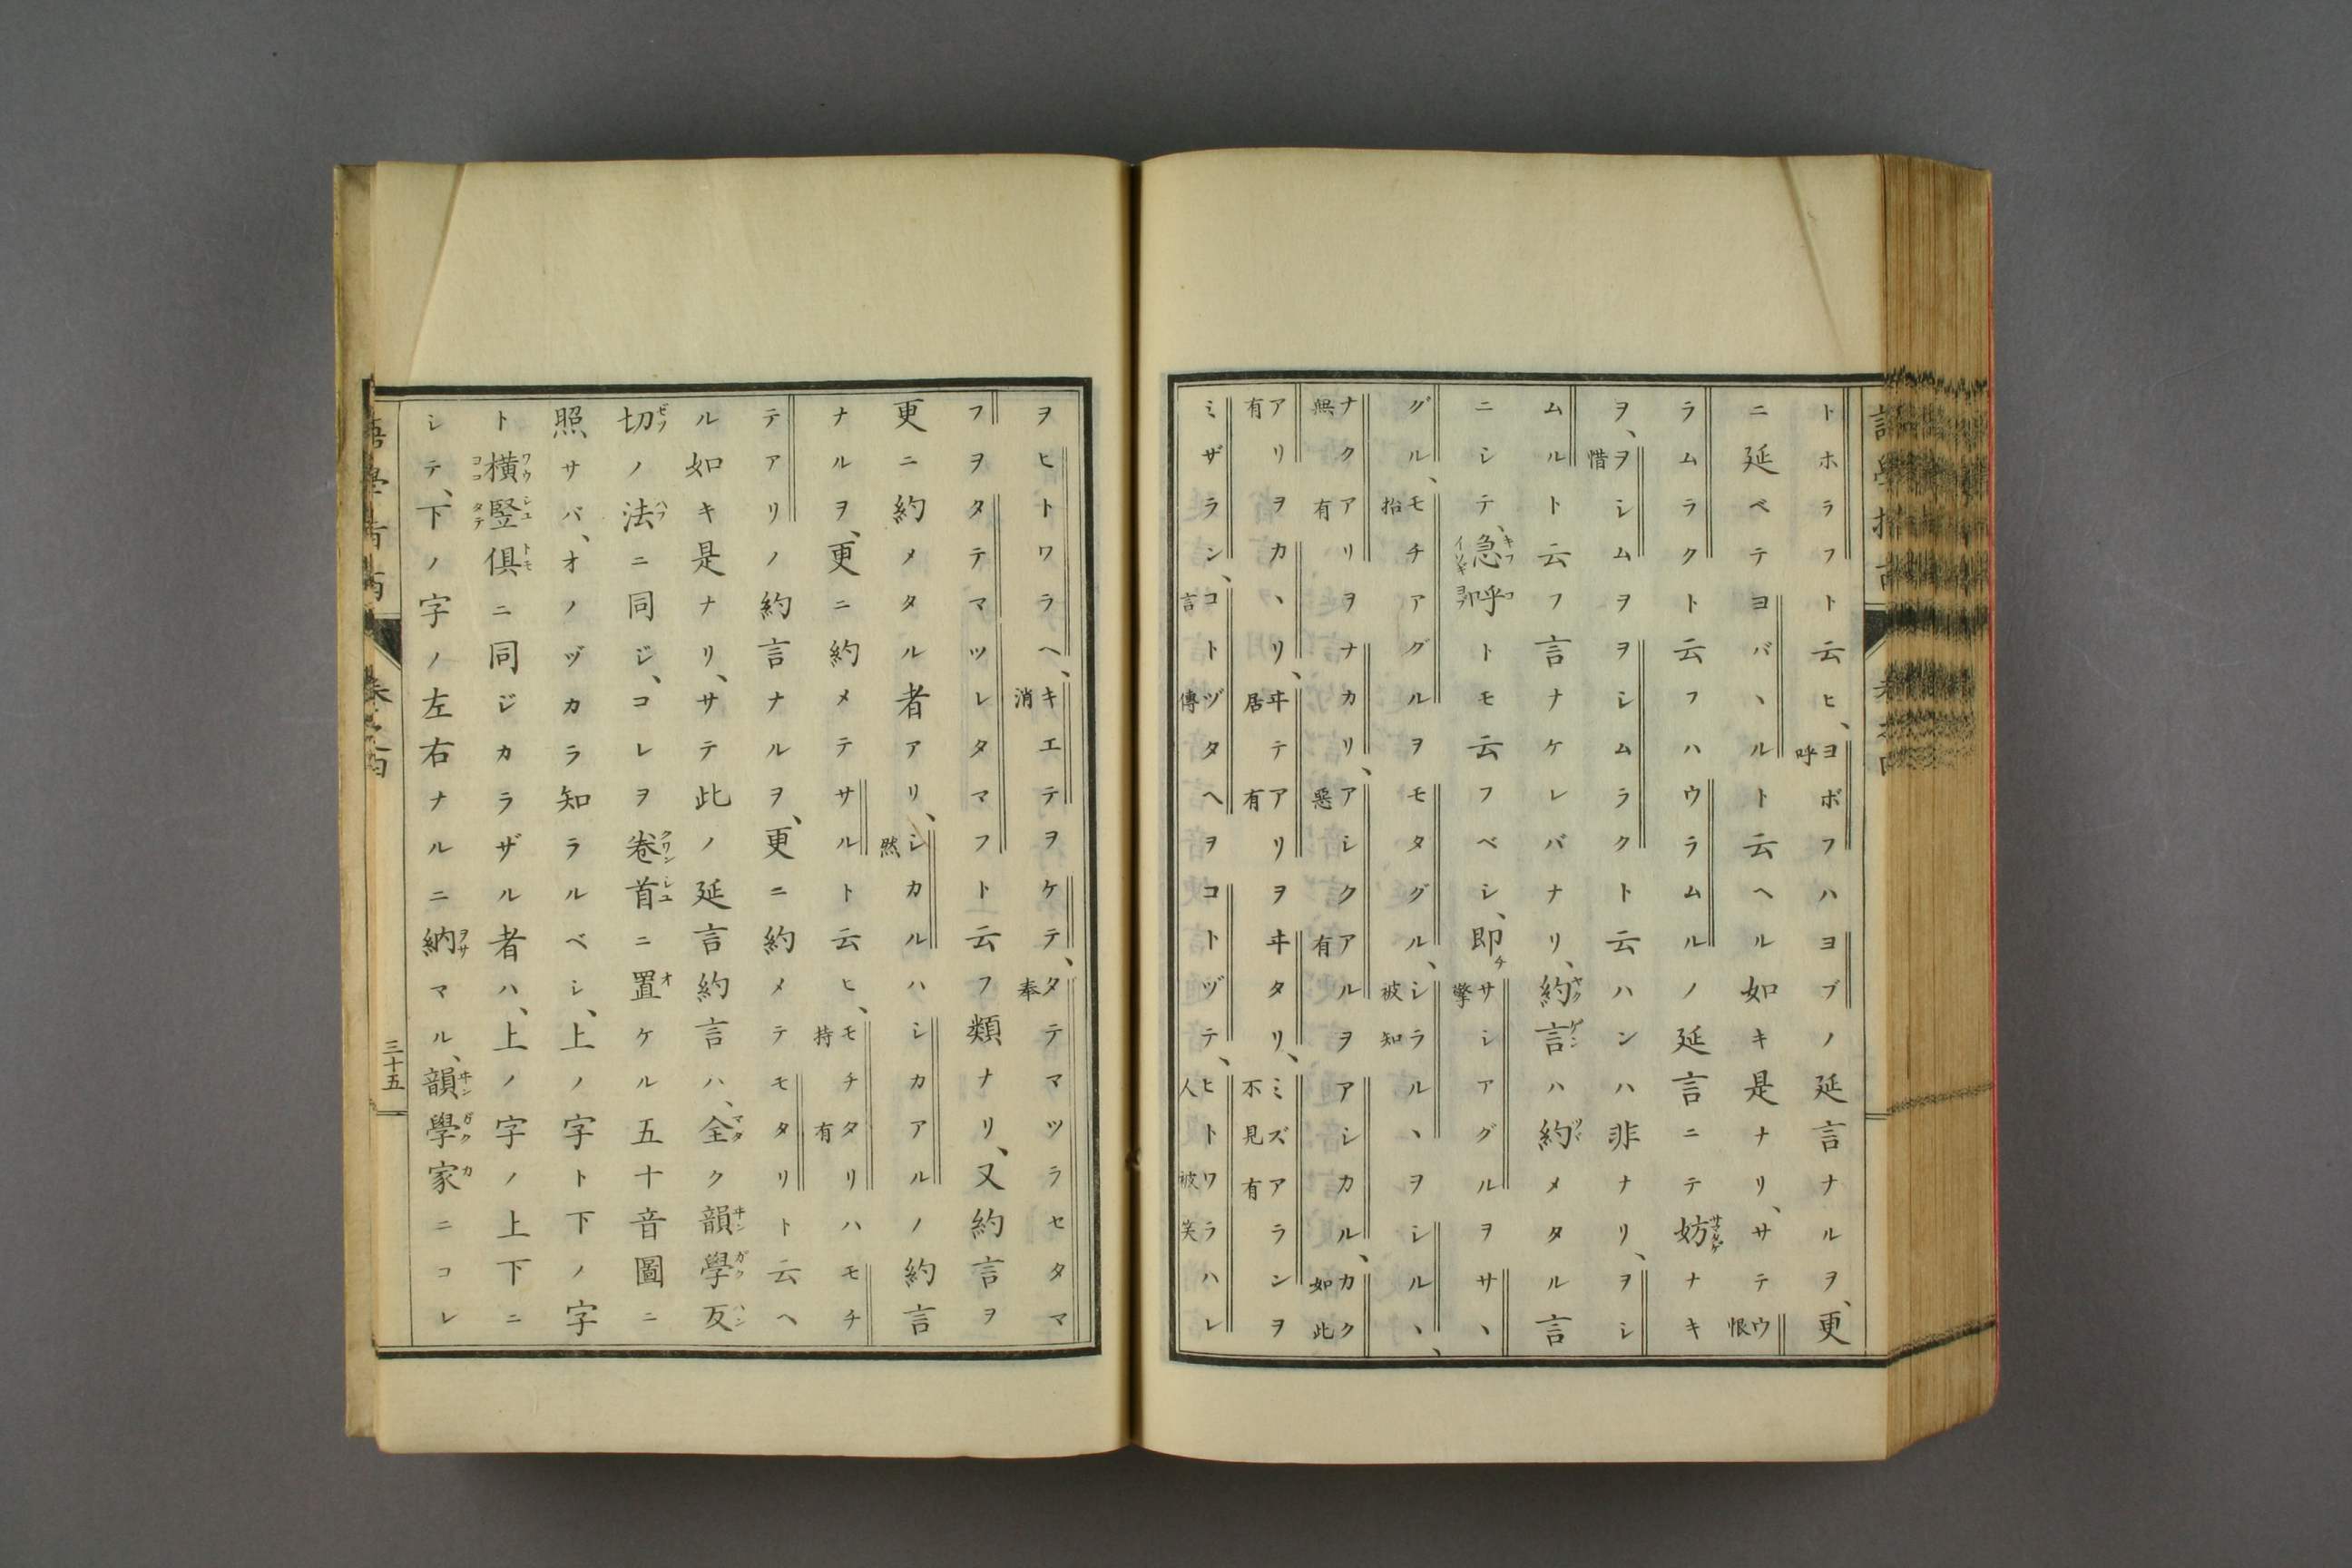 トホラフト云ヒ、ヨボフハヨブノ延言ナルヲ、更
呼
ニ延ベテヨバヽルト云ヘル如キ是ナリ、サテウ
恨
ラムラクト云フハウラムルノ延言ニテ妨ナキ
サマタゲ
ヲ、ヲシムヲヲシムラクト云ハンハ非ナリ、ヲシ
惜
ムルト云フ言ナケレバナリ、約言ハ約メタル言
ヤク ゲン ツヾ
ニシテ、急呼トモ云フベシ、即サシアグルヲサヽ
キフ コ チ
イソギ ヨブ 擎
グル、モチアグルヲモタグル、シラルヽヲシルヽ、
抬 被知
ナクアリヲナカリ、アシクアルヲアシカル、カク
無 有 惡 有 如此
アリヲカヽリ、ヰテアリヲヰタリ、ミズアランヲ
有 居 有 不見 有
ミザラン、コトヅタヘヲコトヅテ、ヒトワラハレ
言 傳 人 被笑
ヲヒトワラヘ、キエテヲケテ、タテマツラセタマ
消 奉
フヲタテマツレタマフト云フ類ナリ、又約言ヲ
更ニ約メタル者アリ、シカルハシカアルノ約言
然
ナルヲ、更ニ約メテサルト云ヒ、モチタリハモチ
持 有
テアリノ約言ナルヲ、更ニ約メテモタリト云ヘ
ル如キ是ナリ、サテ此ノ延言約言ハ、全ク韻學反
マタ ヰン ガク ハン
切ノ法ニ同ジ、コレヲ卷首ニ置ケル五十音圖ニ
ゼフ ハフ クワン シユ オ
照サバ、オノヅカラ知ラルベシ、上ノ字ト下ノ字
ト橫竪俱ニ同ジカラザル者ハ、上ノ字ノ上下ニ
ワウ シユ トモ
ヨコ タテ
シテ、下ノ字ノ左右ナルニ納マル、韻學家ニコレ
ヲサ ヰン ガク カ
三十五